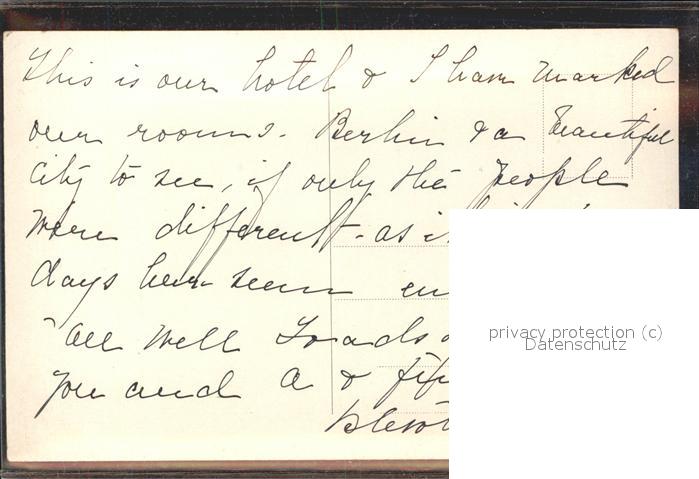 This is our hotel & I have marked
our rooms. Berlin is a beautiful
city to see, if only the people
were different - as i
days here seem en
all well Loads o
you and A & fif
privacy protection (c)
Datenschutz